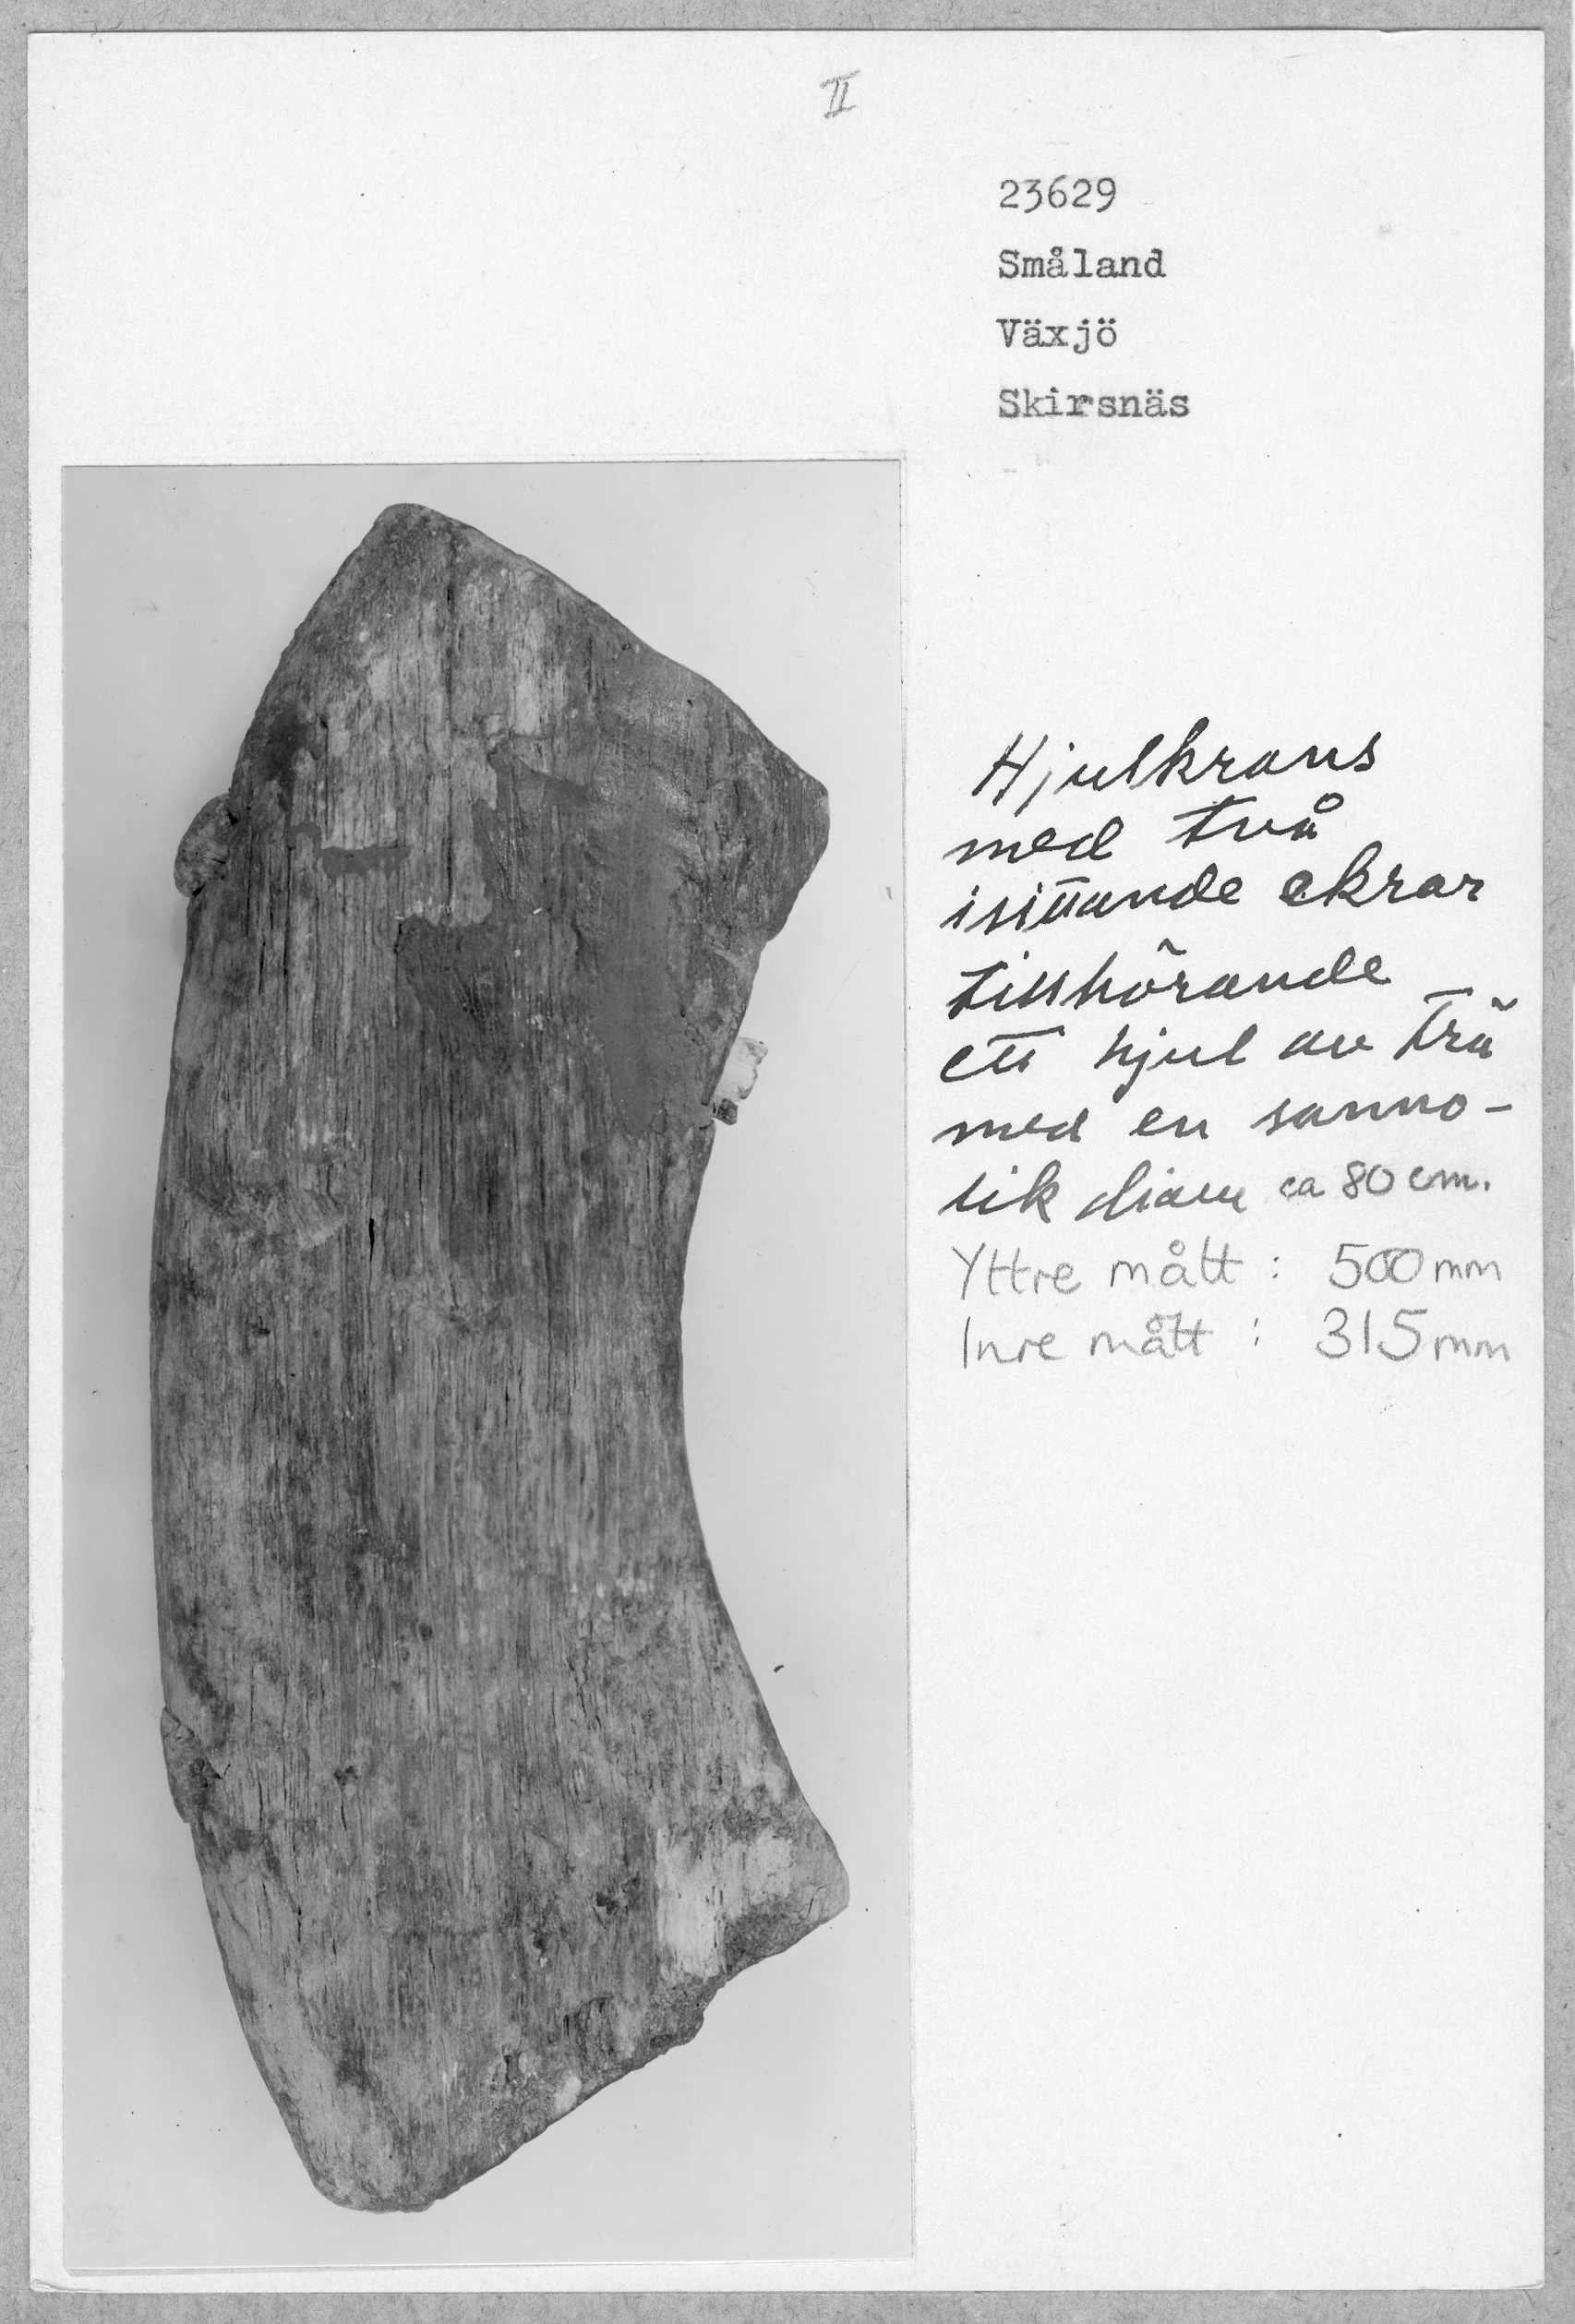 II
23629
Småland
Växjö
Skirsnäs
Hjulkrans
med två
isittande ekrar
tillhörande
ett hjul av trä
med en sanno-
lik diam ca 80 cm.
Yttre mått : 500 mm
Inre mått : 315 mm